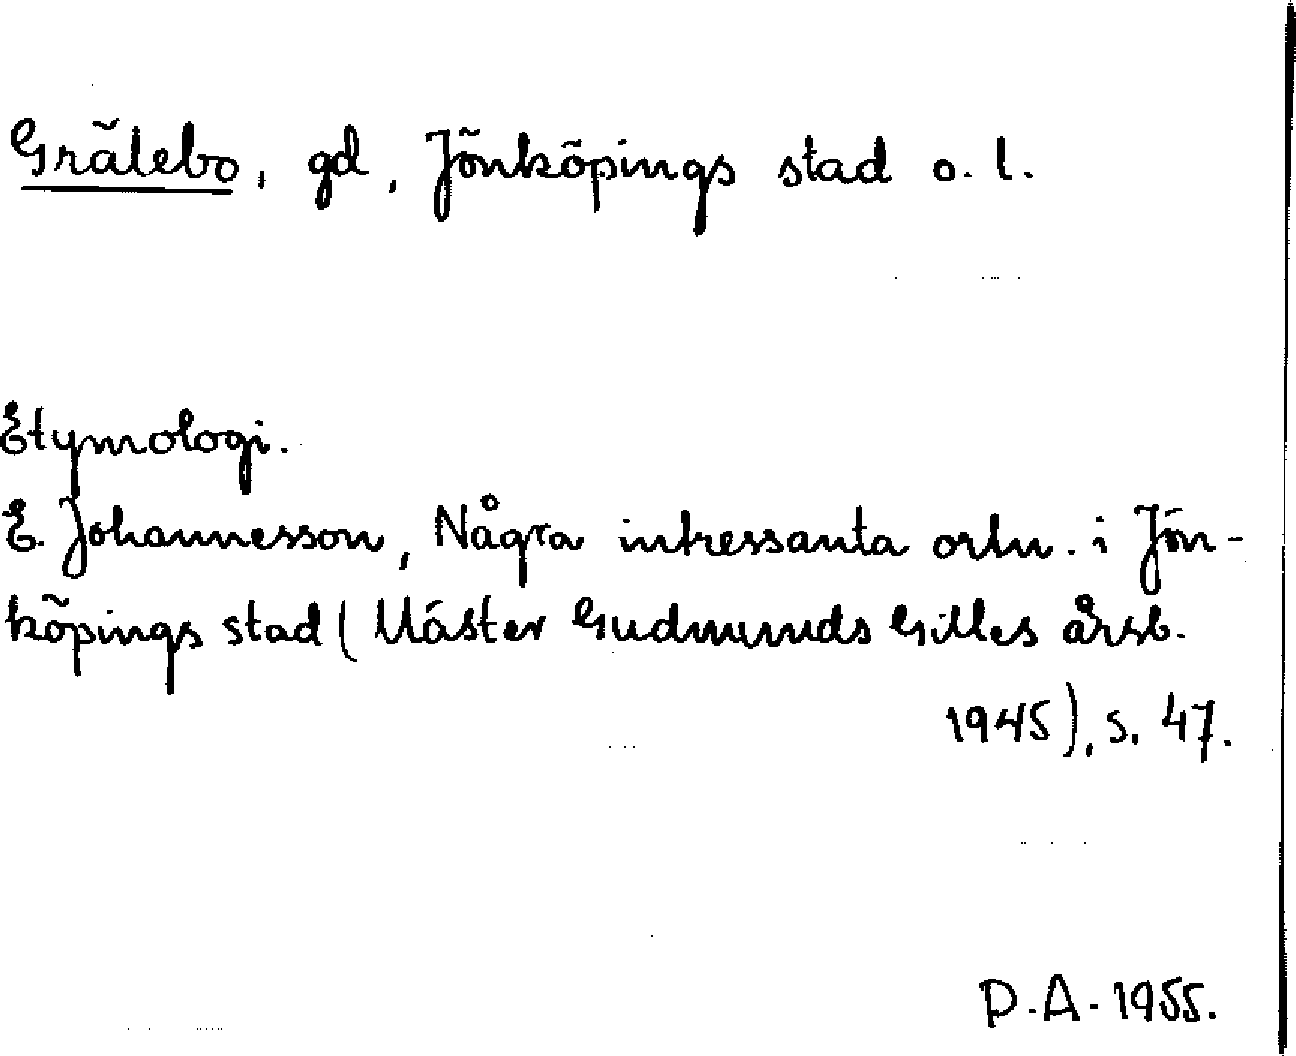 Grälebo, gd, Jönköpings stad o. l.
Etymologi.
E. Johannesson, Några intressanta ortn. i Jön-
köpings stad (Mäster Gudmunds Gilles årsb.
1945), s. 47.
P.A. 1955.